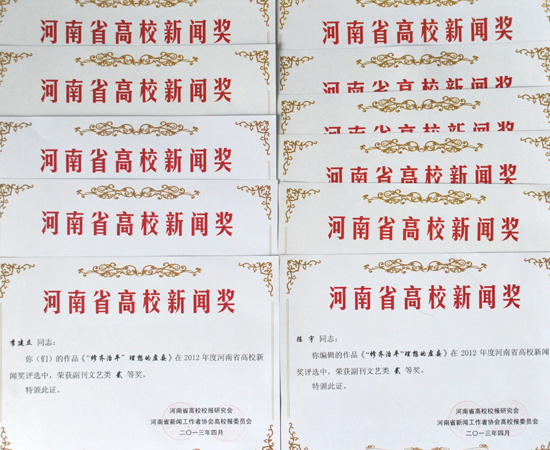 河南省高校新闻奖
河南省高校新闻奖
河南省高校新闻奖
河南省高校新闻奖
河南省高校新闻奖
李建立 同志:
你(们)的作品《“修齐治平”理想的虚妄》在 2012 年度河南省高校新
闻奖评选中,荣获副刊文艺类 贰 等奖。
特颁此证。
河南省高校校报研究会
河南省新闻工作者协会高校校报委员会
二〇一三年四月
河南省高校新闻奖
河南省高校新闻奖
河南省高校新闻奖
河南省高校新闻奖
河南省高校新闻奖
河南省高校新闻奖
陈 宇 同志:
你编辑的作品《“修齐治平”理想的虚妄》在 2012 年度河南省高校新
闻奖评选中,荣获副刊文艺类 贰 等奖。
特颁此证。
河南省高校校报研究会
河南省新闻工作者协会高校校报委员会
二〇一三年四月